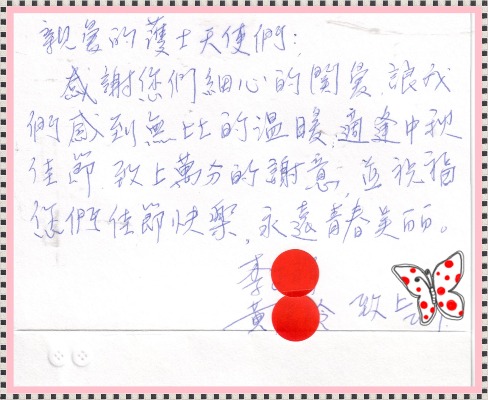 親愛的護士天使們:
感謝您們細心的關愛,讓我
們感到無比的溫暖,適逢中秋
佳節 致上萬分的謝意,並祝福
您們佳節快樂,永遠青春美丽。
李
黃 玲 致上